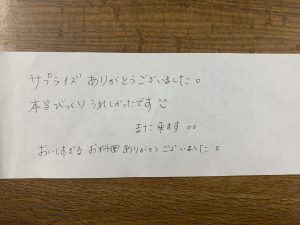 サプライズ ありがとうございました。
本当 びっくり うれしかったです
また 来ます 。。
おいしすぎる お料理 ありがとう ございました。